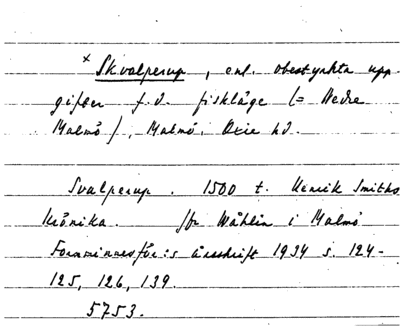 x Skvalperup, enl. obestyrkta upp-
gifter f.d. fiskläge (= Nedre
Malmö), Malmö, Oxie hd.
Svalperup. 1500 t. Henrik Smiths
krönika. Jfr Wåhlin i Malmö
Fornminnesför:s årsskrift 1934 s. 124-
125, 126, 139.
5753.